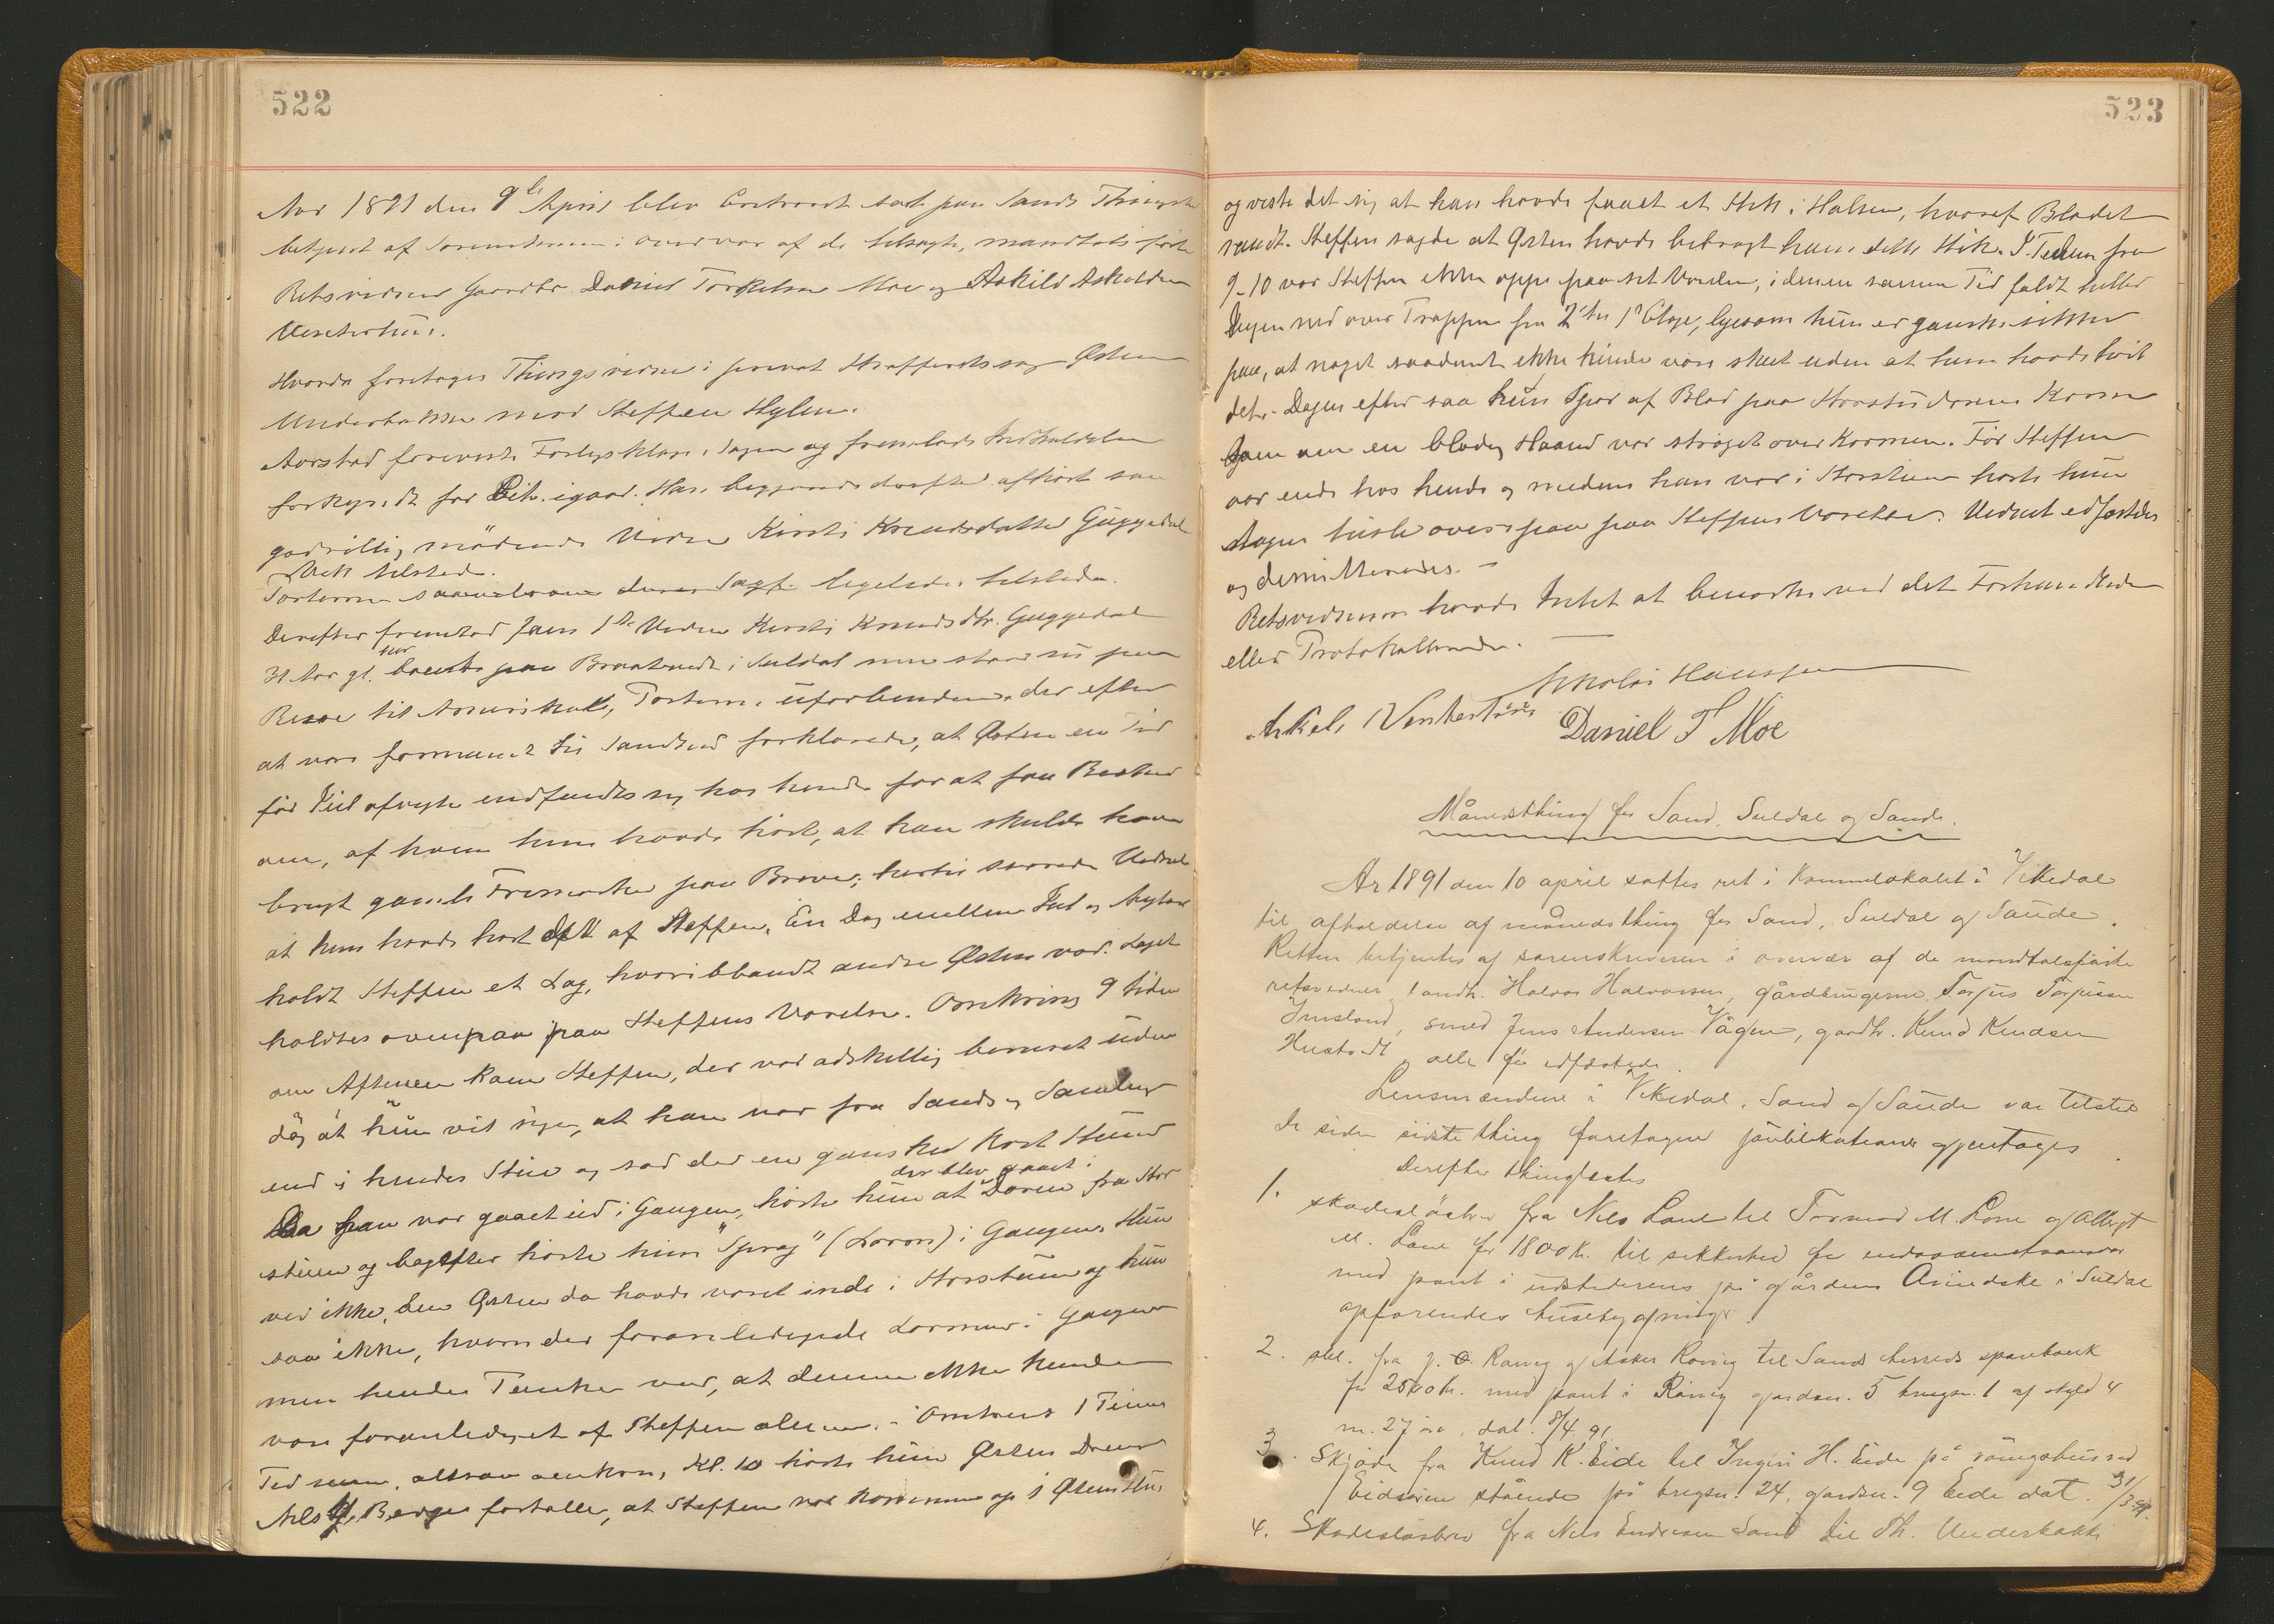 522
Aar 1891 den 9de April blev Extraret sat paa Sands Thingsted
betjent af Sorenskriveren i overvær af de tilsagte, mandtalsførte
Retsvidner Gaardbr. Daniel Torkelsen Moe og Askild Askeldsen
Vestertun.
Hvorda foretoges Thingsvidne i privat Strafferetssag Østen
Underbakke mod Steffen Hylen.
Aarstad foreviste Forligsklage i Sagen og fremlagde Indkaldelse
forkyndt for igaar. Han begjærede derefter afhørt som
godvillig mødende Vidne Kirsti Knudsdatter Guggedal
Vek tilstede.
Parterne saavelsom deres Sagf. ligeledes tilstede.
Derefter fremstod som 1ste Vidne Kirsti Knudsdtr. Guggedal
31 Aar gl. boende paa Braatveit i Suldal men staar nu paa
Reise til Amerika, Parterne uforbunden, der efter
at være formanet til Sandhed forklarede, at Østen en Tid
før Jul afvigte indfandt sig hos hende for at faa Besked
om, af hvem hun havde hørt, at han skulde have
brugt gamle Frimærker paa Breve; hertil svarede Vidnet
at hun havde hørt det af Steffen. En Dag mellem Jul og Nytaar
holdt Steffen et Lag, hvoriblandt andre Østen var. Laget
holdtes ovenpaa paa Steffens Værelse. Omkring 9 tiden
om Aftenen kom Steffen, der var adskillig beruset uden
dog at hun vil sige, at han var fra Sands og Samling
ind i hendes Stue og sad der en ganske kort Stund
der blev gaaet i
Da han var gaaet ud i Gangen, hørte hun at Døren fra Stor
stuen og bagefter hørte hun "Sprag" (Larm) i Gangen. Hun
ved ikke, om Østen da havde været inde i Storstuen og hun
saa ikke, hvem der foranledigede Larmen i Gangen
men hendes Tanke var, at denne ikke kunde
være foranlediget af Steffen alene. Omtrent 1 Times
Tid senere, altsaa omkr. Kl. 10 hørte hun Østen Dreng
Nils Berge fortælle, at Steffen var kommen op i Østens Stue
523
og viste det sig at han havde faaet et Stik i Halsen, hvoraf Blodet
randt. Steffen sagde at Østen havde bibragt ham dette Stik. I Tiden fra
9-10 var Steffen ikke oppe paa sit Værelse, i denne samme Tid faldt heller
Ingen ned over Trappen fra 2den til 1ste Etage, ligesom hun er ganske sikker
paa, at noget saadant ikke kunde være skeet uden at hun havde hørt
det. Dagen efter saa hun Spor af Blod paa Storstudørens Karm
som om en blodig Haand var strøget over Karmen. Før Steffen
var inde hos hende og medens han var i Storstuen hørte hun
Ingen tusle ovenpaa paa Steffens Værelse. Vidnet edfæstedes
og demitteredes. -
Retsvidnerne havde Intet at bemærke ved det Forhandlede
eller Protokollerede.
Nikolai Hanssen
Askeld Vestertun Daniel T Moe
Månedsthing for Sand, Suldal og Saude.
År 1891 den 10 april sattes ret i kommunelokalet i Vikedal
til afholdelse af månedsthing for Sand, Suldal og Saude.
Retten betjentes af sorenskriveren i overvær af de mandtalsførte
retsvidner landh. Halvor Halvorsen, gårdbrugerne Torjus Torjusen
Imsland, smed Jens Andersen Vågen, gardbr. Knud Knudsen
Hustvedt alle før edfæstede.
Lensmændene i Vikedal, Sand og Saude var tilstede
De siden sidste thing foretagne publikationer gjentages.
Derefter thinglæstes
1. skadesløsbrev fra Nils Lone til Tormod M. Lone og Albregt
M. Lone for 1800 k. til sikkerhed for endossementsansvar
med pant i udstederens på gården Årindske i Suldal
opførendes husebygninger.
2. skl. fra J. O. Ravig og Asker Rovig til Sands herreds sparebank
for 2500 k. med pant i Røvig gardsn. 5 brugsn. 1 af skyld 4
m. 27 øre, dat. 8/4 91.
3. Skjøde fra Knud K. Eide til Ingeri H. Eide på våningshus ved
Eidsøren stående på brugsn. 24, gardsn. 9 Eide dat. 31/3 91.
4. Skadesløsbrev fra Nils Endresen Sand til Th. Underbakke